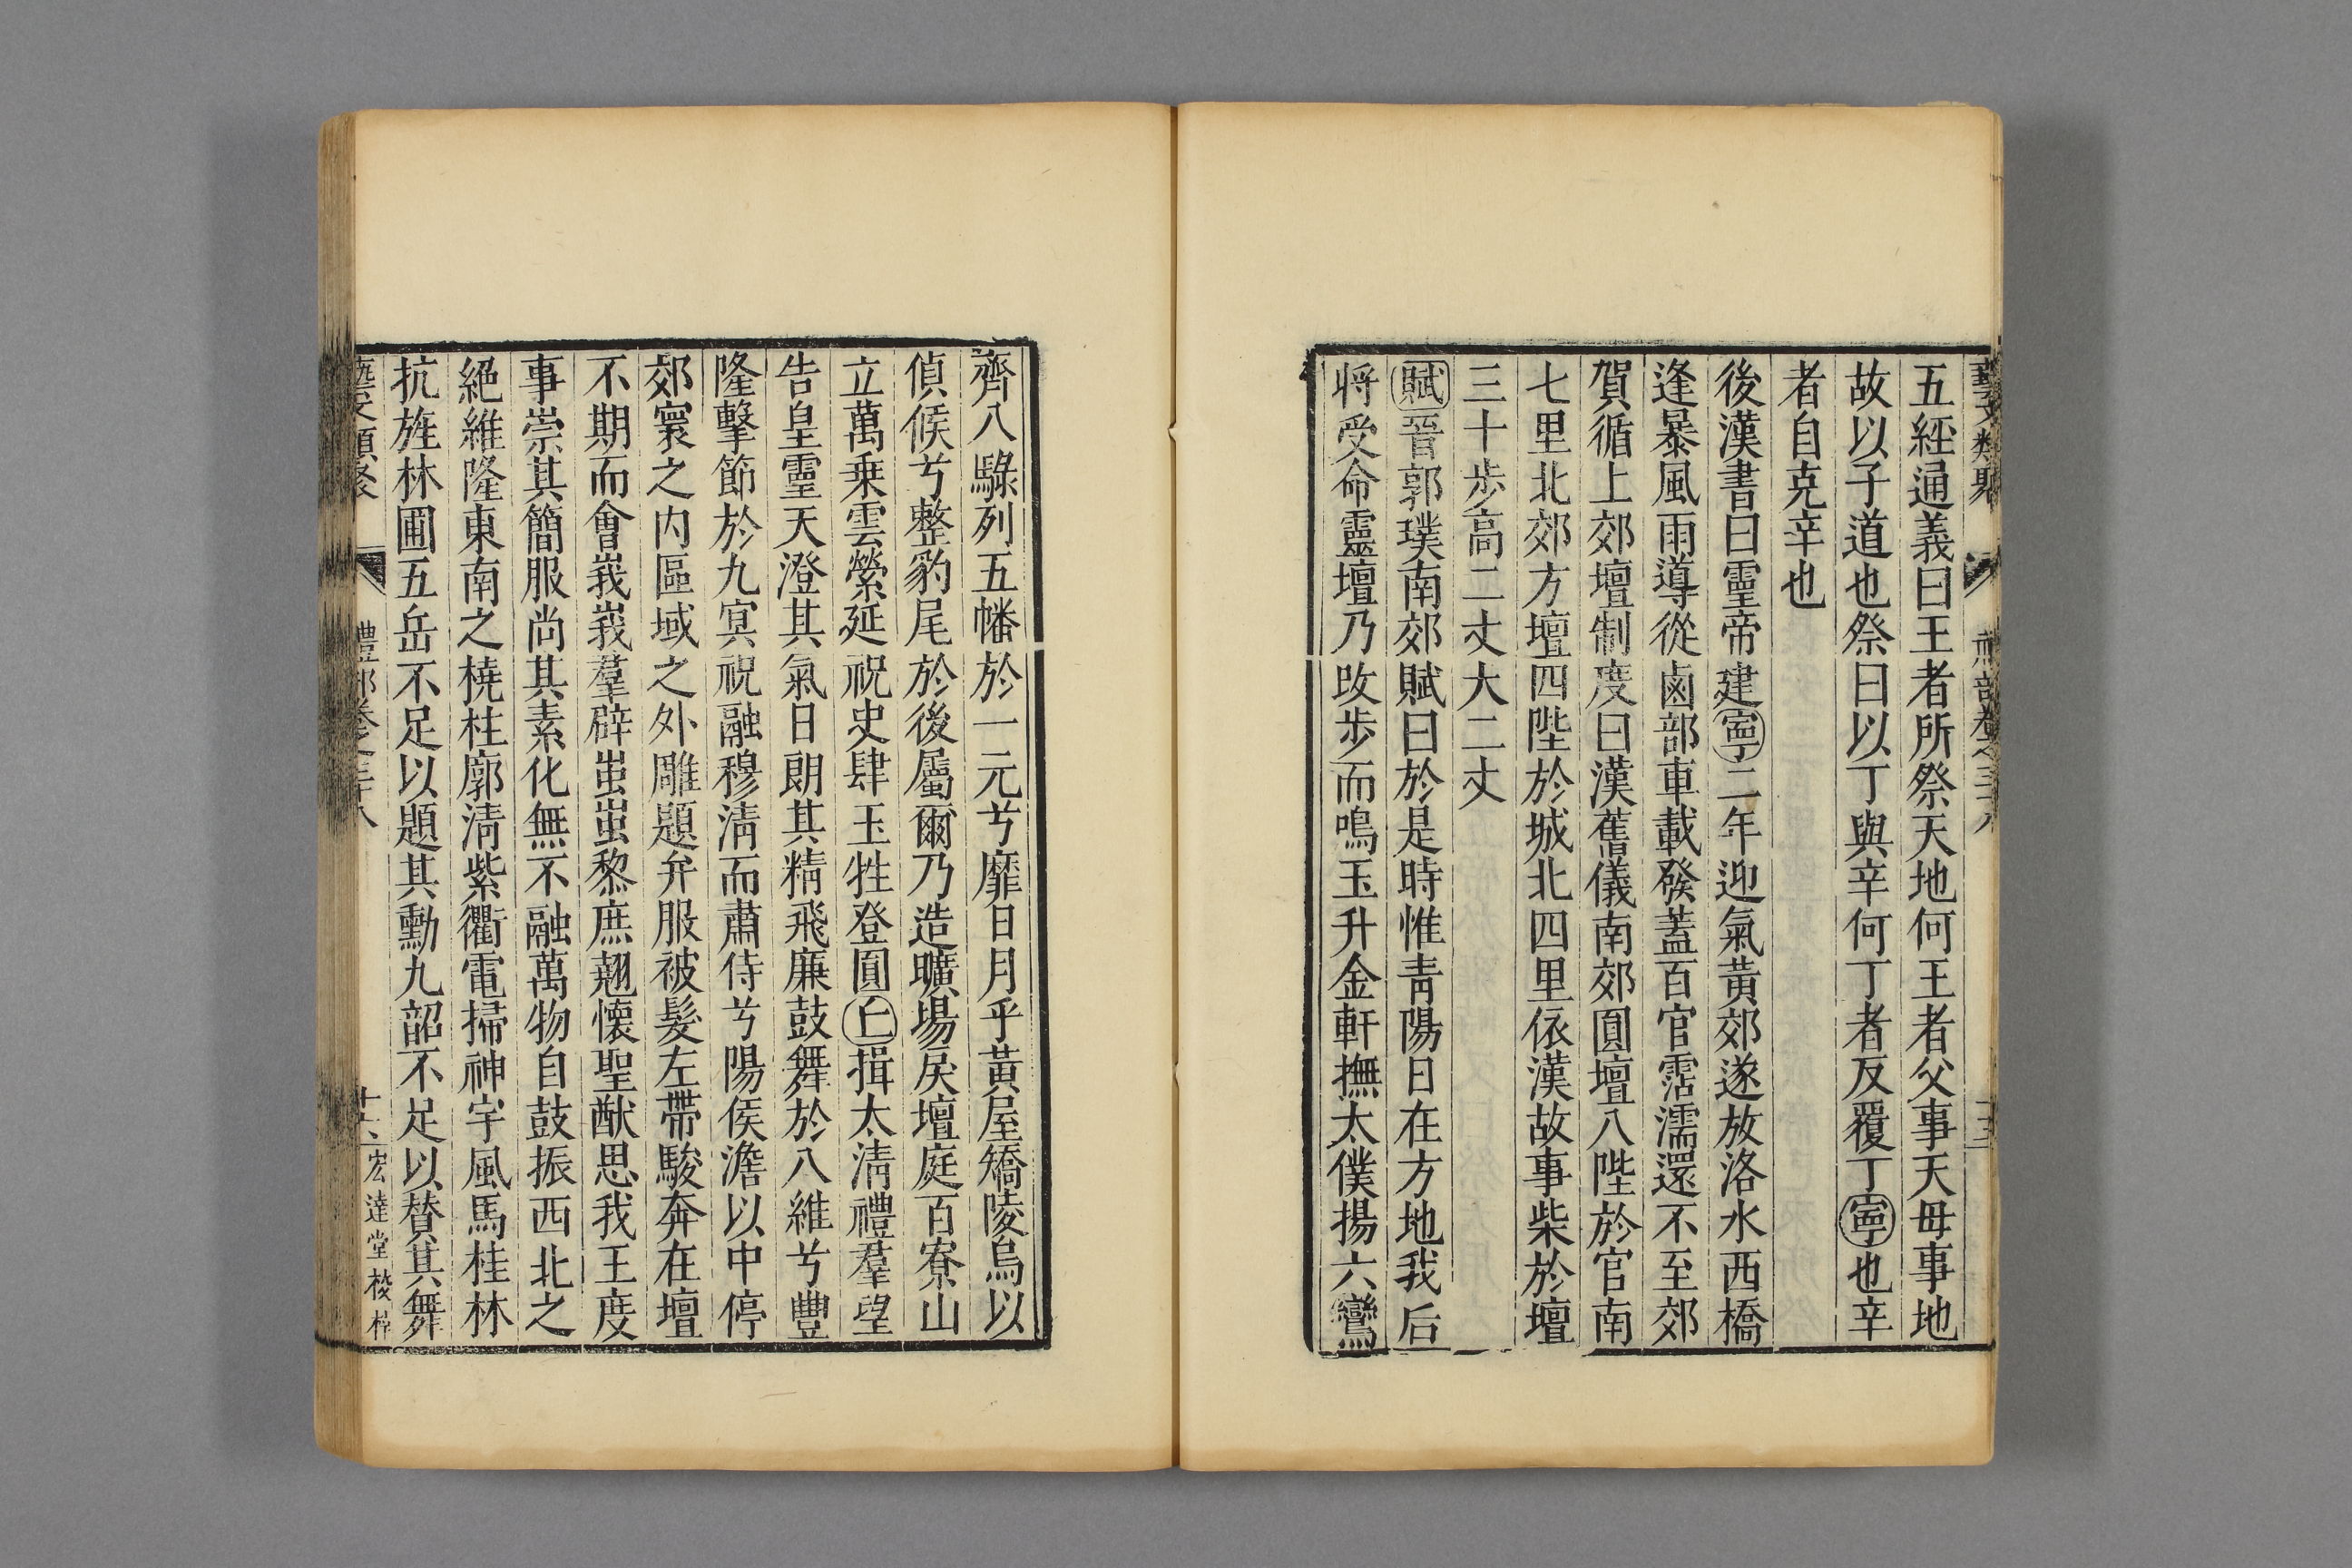 五經通義曰王者所祭天地何王者父事天母事地
故以子道也祭曰以丁與辛何丁者反覆丁寍也辛
者自克辛也
後漢書曰靈帝建寍二年迎氣黃郊遂放洛水西橋
逢暴風雨導從鹵部車載發蓋百官霑濡還不至郊
賀循上郊壇制度曰漢舊儀南郊圓壇八陛於官南
七里北郊方壇四陛於城北四里依漢故事柴於壇
三十步高二丈大二丈
賦晉郭璞南郊賦曰於是時惟青陽日在方地我后
將受命靈壇乃改步而鳴玉升金軒撫太僕揚六鸞
齊八騄列五幡於一元兮靡日月乎黃屋矯陵烏以
偵候兮整豹尾於後屬爾乃造曠場戾壇庭百寮山
立萬乗雲縈延祝史肆玉牲登圓丘揖太清禮羣望
告皇靈天澄其氣日朗其精飛廉鼓舞於八維兮豐
隆擊節於九㝠祝融穆清而肅侍兮陽侯澹以中停
郊寰之内區域之外雕題弁服被髮左帶駿奔在壇
不期而會峩峩羣辟蚩蚩黎庶翹懷聖猷思我王度
事崇其簡服尚其素化無不融萬物自鼓振西北之
絕維隆東南之橈柱廓清紫衢電掃神宇風馬桂林
抗旌林圃五岳不足以題其勳九韶不足以賛其舞
藝文類聚 禮部卷之三十八 宏達堂